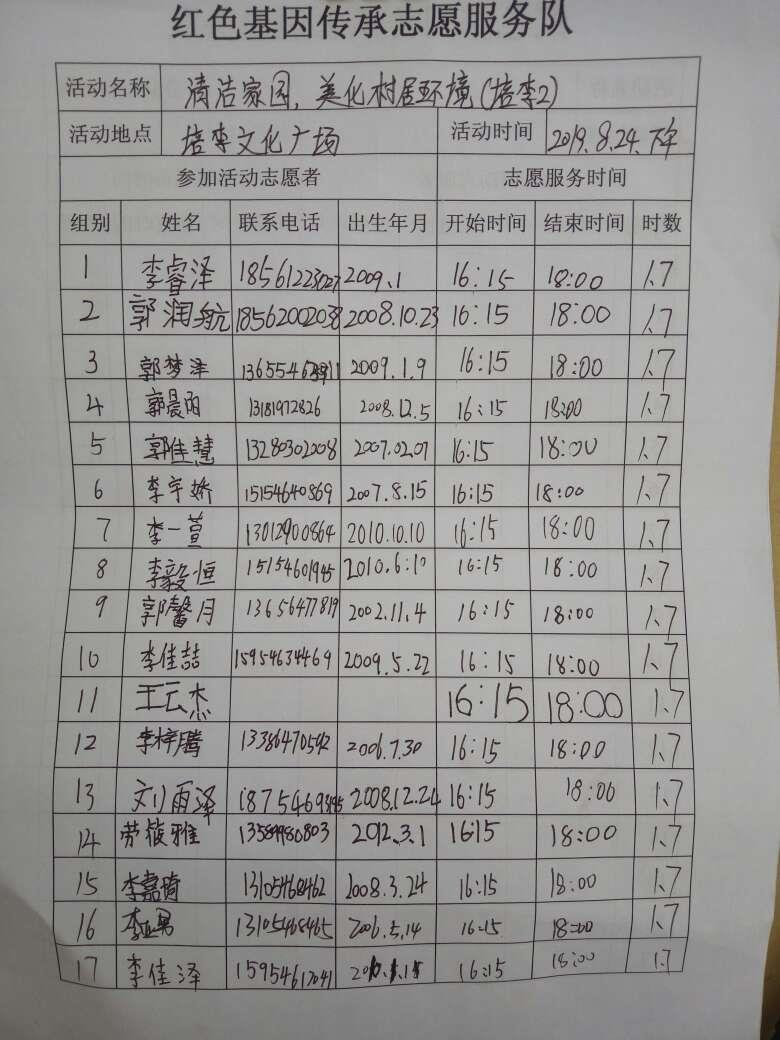 红色基因传承志愿服务队
活动名称 清洁家园，美化村居环境(培李2)
活动地点 培李文化广场 活动时间 2019.8.24.下午
参加活动志愿者 志愿服务时间
组别 姓名 联系电话 出生年月 开始时间 结束时间 时数
1 李睿泽 18561223027 2009.1 16:15 18:00 1.7
2 郭润航 18562002038 2008.10.23 16:15 18:00 1.7
3 郭梦泽 2009.1.9 16:15 18:00 1.7
4 郭晨雨 13181972826 2008.12.5 16:15 18:00 1.7
5 郭佳慧 13280302008 2007.02.07 16:15 18:00 1.7
6 李宇娇 15154640869 2007.8.15 16:15 18:00 1.7
7 李一萱 13012900864 2010.10.10 16:15 18:00 1.7
8 李毅恒 15154601945 2010.6.10 16:15 18:00 1.7
9 郭馨月 13656477819 2002.11.4 16:15 18:00 1.7
10 李佳喆 15954634469 2009.5.22 16:15 18:00 1.7
11 王云杰 16:15 18:00 1.7
12 李梓腾 13386470542 2006.7.30 16:15 18:00 1.7
13 刘雨泽 2008.12.24 16:15 18:00 1.7
14 劳筱雅 13589980803 2012.3.1 16:15 18:00 1.7
15 李嘉琦 13105468462 2008.3.24 16:15 18:00 1.7
16 李亚男 13105468465 2006.5.14 16:15 18:00 1.7
17 李佳泽 15954617041 16:15 18:00 1.7